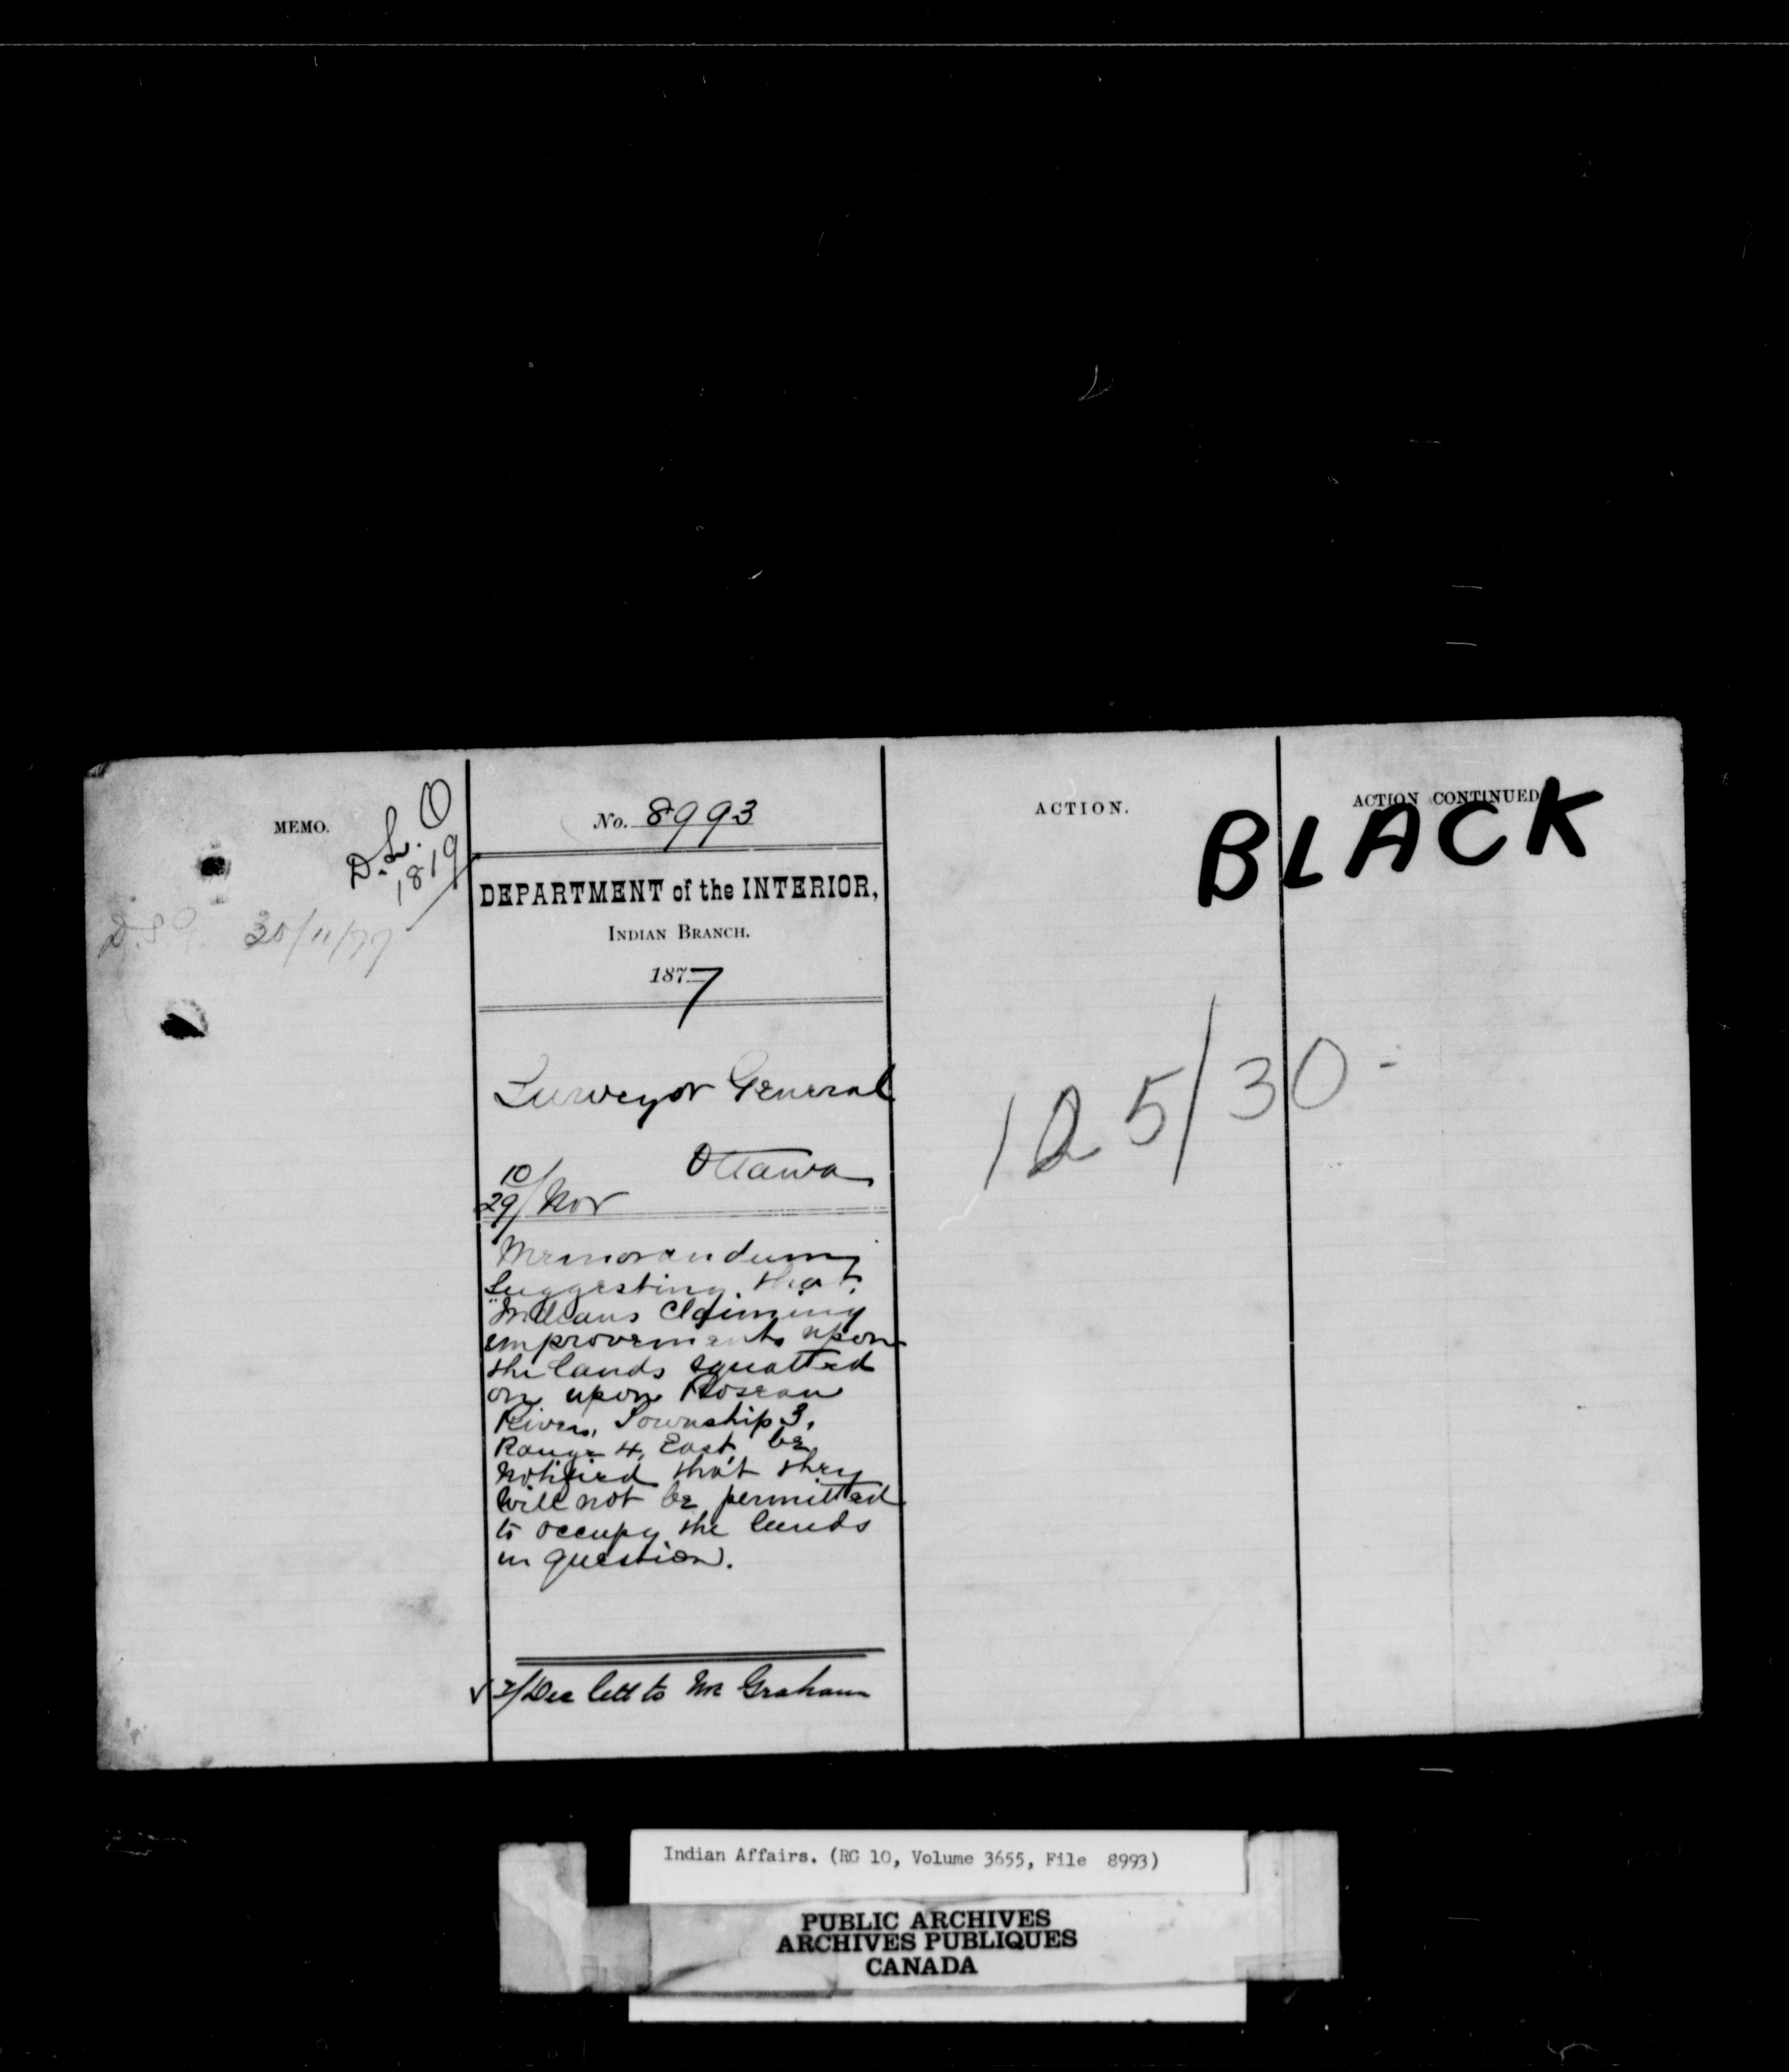 MEMO.
D. L. O
1819
30/11/77
No. 8993
DEPARTMENT of the INTERIOR,
INDIAN BRANCH.
1877
Surveyor General
Ottawa
10/
29/Nov
Memorandum
Suggesting that
"Indians Claiming
improvements upon
the lands squatted
on upon Roseau
River, Township 3,
Range 4, East, be
notified that they
will not be permitted
to occupy the lands
in question.
3/Dec lett to Mr Graham
ACTION.
125/30-
ACTION CONTINUED
BLACK
Indian Affairs. (RG 10, Volume 3655, File 8993)
PUBLIC ARCHIVES
ARCHIVES PUBLIQUES
CANADA